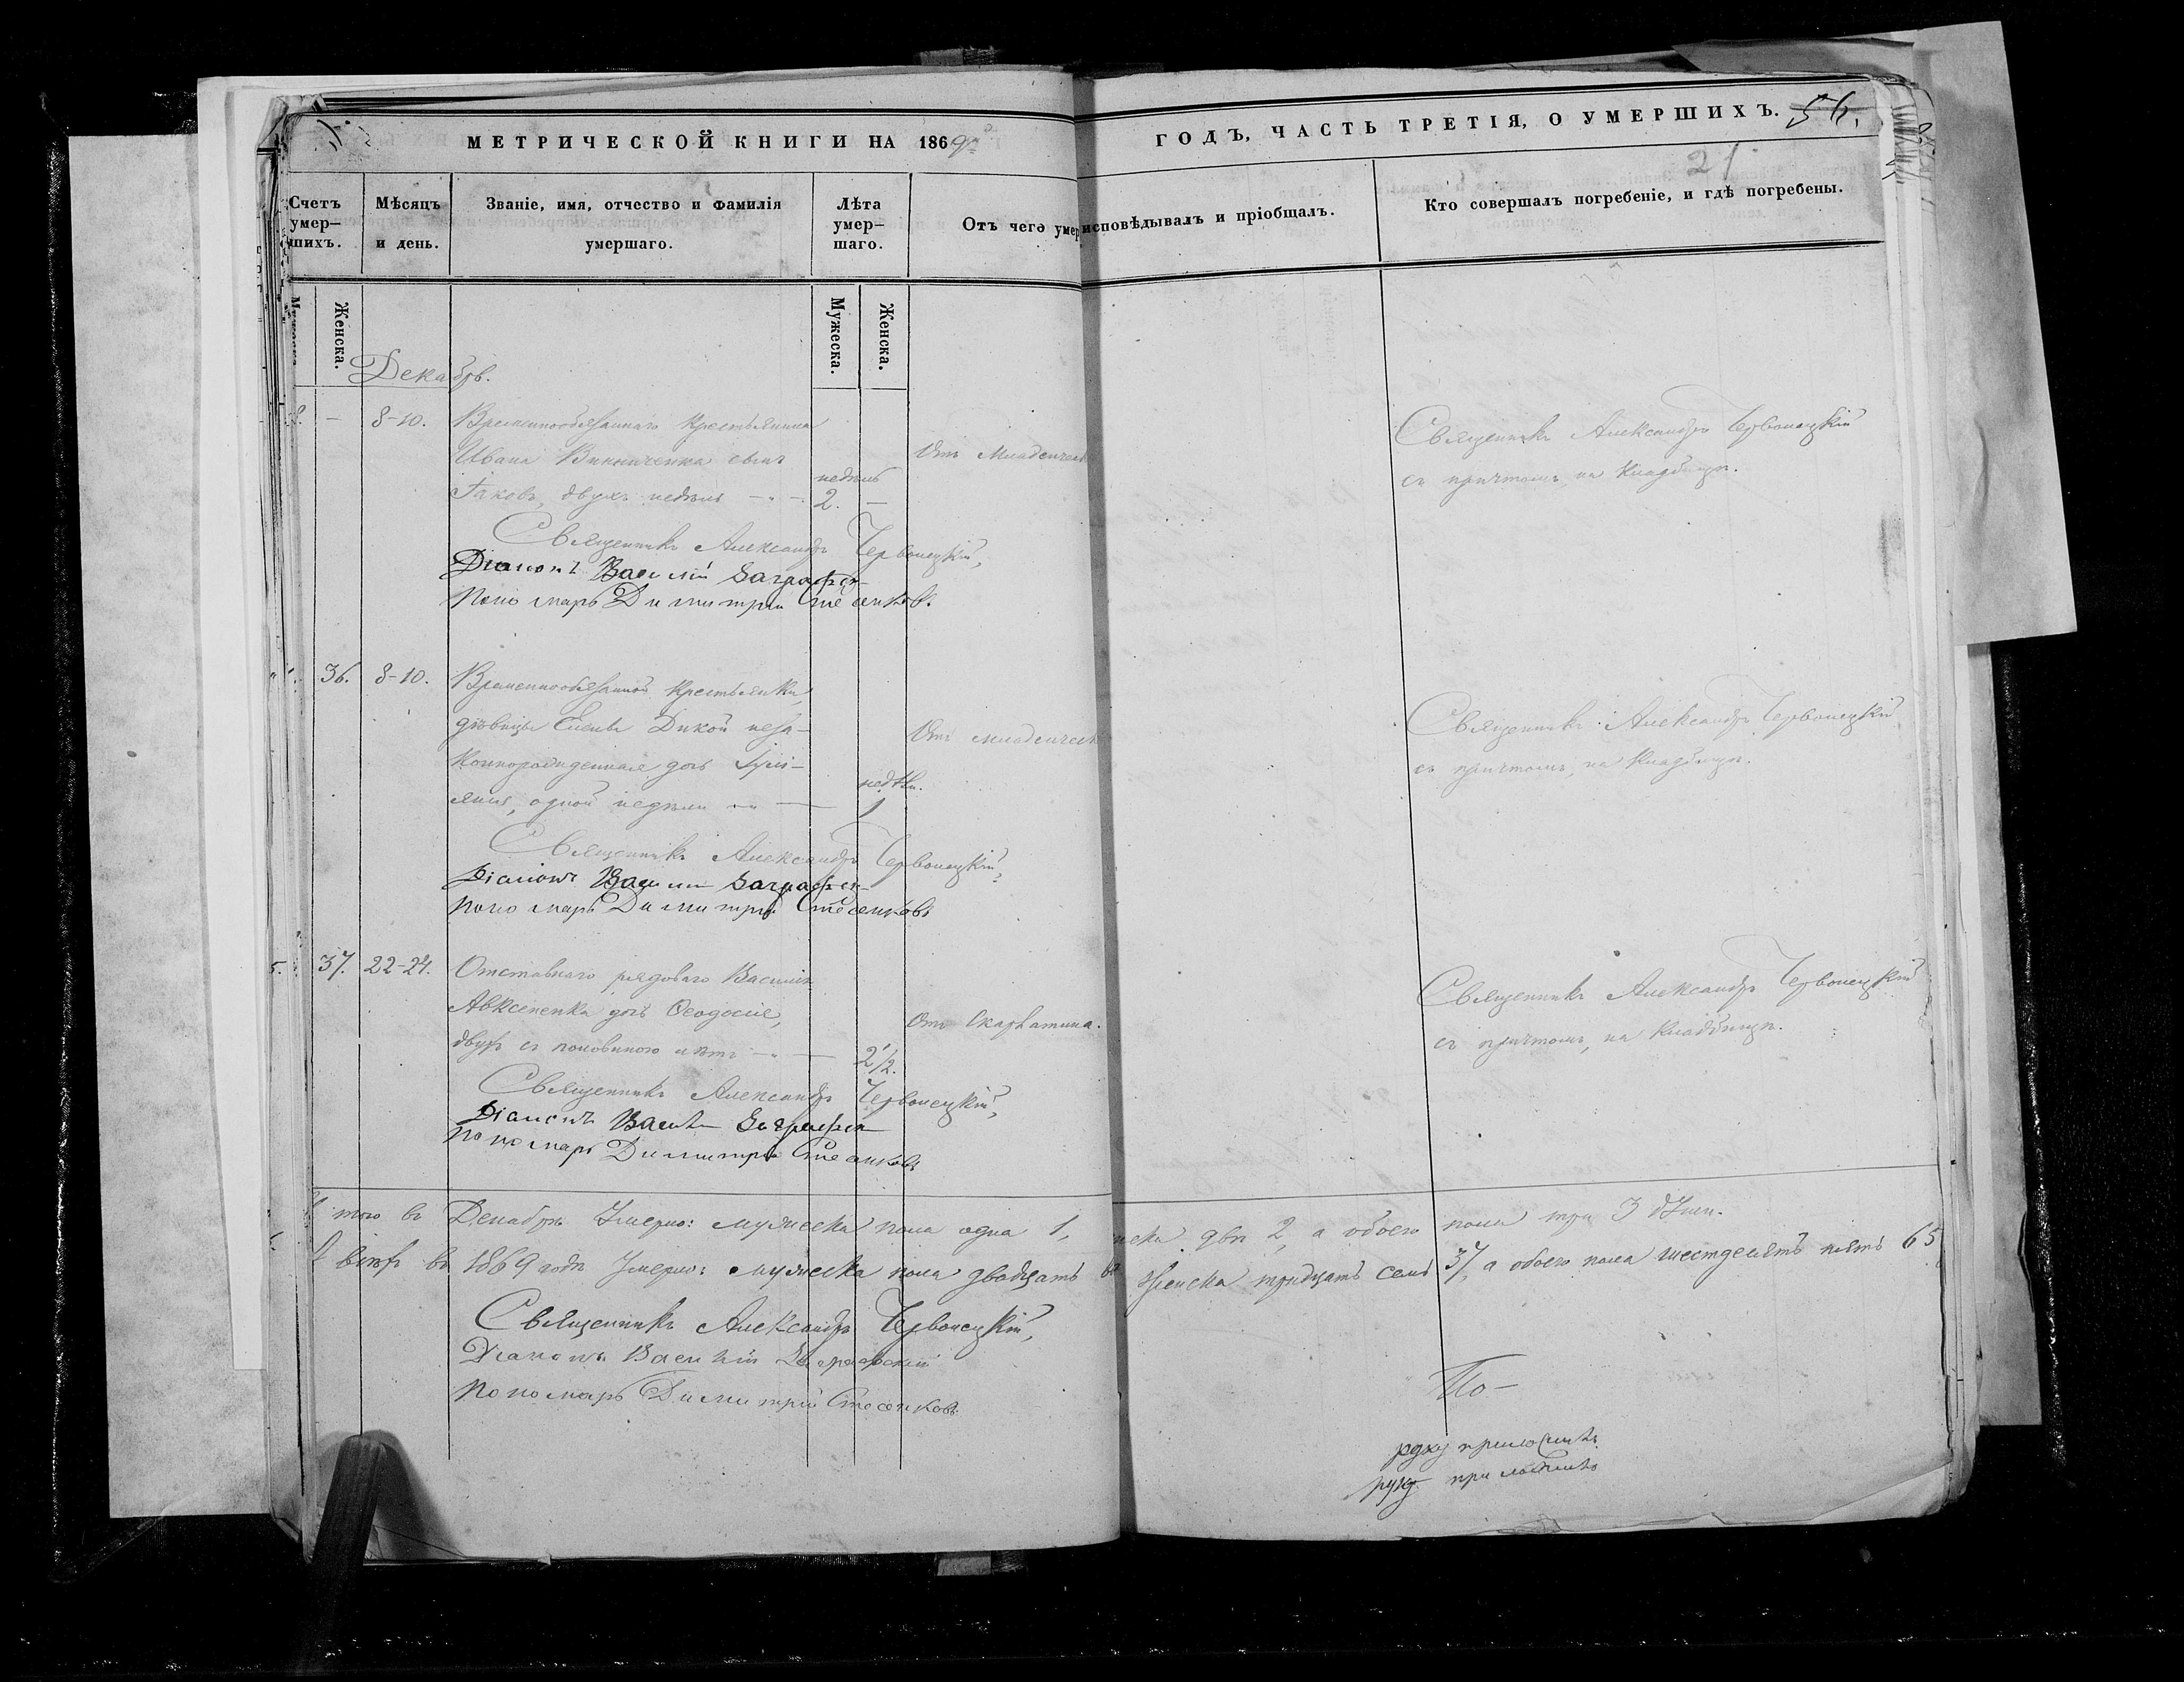 МЕТРИЧЕСКОЙ КНИГИ НА 1869 ГОДЪ, ЧАСТЬ ТРЕТІЯ, О УМЕРШИХЪ.
21
Счетъ умер–шихъ.
Мѣсяцъ и день.
Званіе, имя, отчество и фамилія умершаго.
Лѣта умер–шаго.
Отъ чего умер
исповѣдывалъ и пріобщалъ.
Кто совершалъ погребеніе, и гдѣ погребены.
Женска.
Мужеска.
Женска.
Декабрь.
— 8-10. Временнообязаннаго крестьянина
Ивана Винниченка сынъ
Іаковъ, двухъ недѣль
недѣль
2. —
Отъ младенческ
Священникъ Александръ Червонецкій
съ причтомъ, на кладбищѣ.
Священникъ Александръ Червонецкій,
Діаконъ Василій
Пономарь Димитрій
36. 8-10. Временнообязанной крестьянки,
дѣвицы Елены Дикой неза-
коннорожденная дочь
одной недѣли
недѣл.
1
Отъ младенческ
Священникъ Александръ Червонецкій,
съ причтомъ, на кладбищѣ.
Священникъ Александръ Червонецкій,
Діаконъ Василій
Пономарь Димитрій
37. 22-24. Отставнаго рядоваго Василія
Авксененка дочь Ѳеодосія,
двухъ съ половиною лѣтъ
2 1/2.
Отъ Скарлатина.
Священникъ Александръ Червонецкій
съ причтомъ, на кладбищѣ.
Священникъ Александръ Червонецкій,
Діаконъ Василій
Пономарь Димитрій
того въ Декабрѣ Умерло: мужеска пола одна 1, нска двѣ 2, а обоего пола три 3 души.
въ 1869 годѣ Умерло: мужеска пола двадцать женска тридцать семь 37, а обоего пола шестдесятъ пять 65
Священникъ Александръ Червонецкій,
Діаконъ Василій
Пономарь Димитрій
По-
руку приложилъ
руку приложилъ